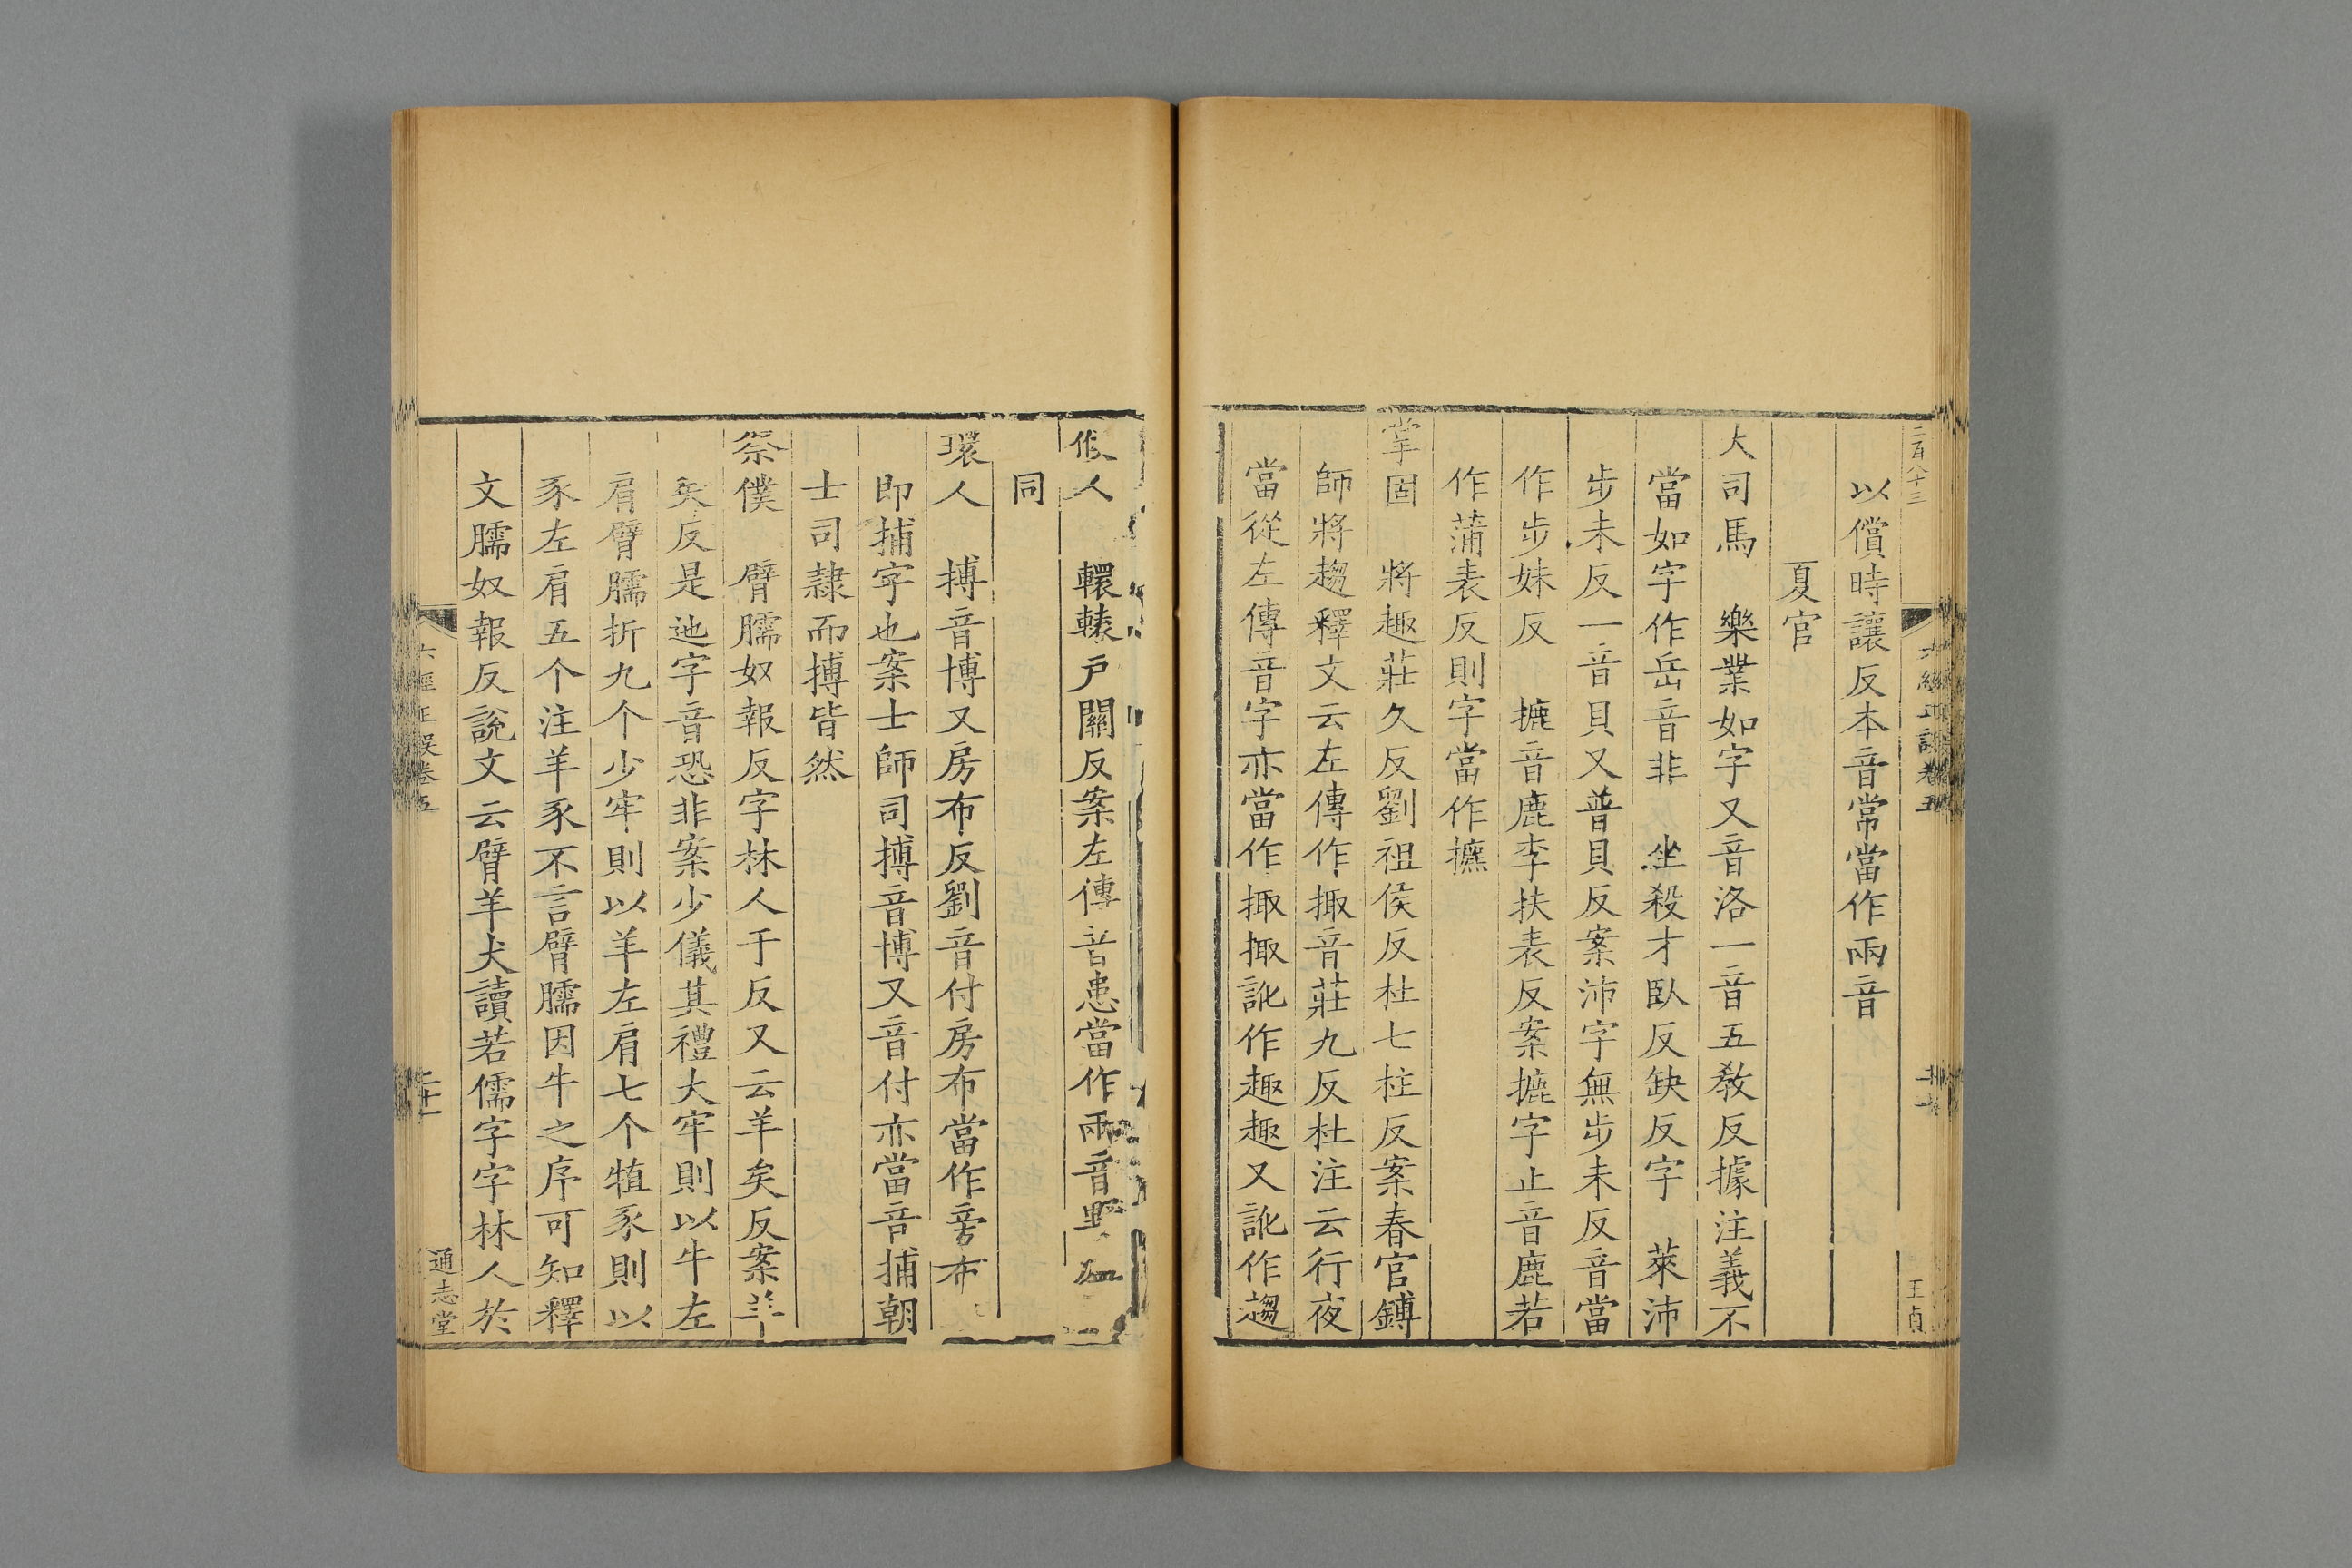 二百八十三
六經正誤卷五
王貞
以償時讓反本音常當作兩音
夏官
大司馬 樂業如字又音洛一音五教反據注義不
當如字作岳音非 坐殺才臥反缺反字 萊沛
步未反一音貝又普貝反案沛字無步未反音當
作步妹反 摝音鹿李扶表反案摝字止音鹿若
作蒲表反則字當作㩠
掌固 將趣莊久反劉祖侯反杜七柱反案春官鎛
師將趨釋文云左傳作掫音莊九反杜注云行夜
當從左傳音字亦當作掫掫訛作趣趣又訛作趨
人 轘轅戶關反案左傳音患當作兩音野
同
環人 搏音博又房布反劉音付房布當作旁布
即捕字也案士師司搏音博又音付亦當音捕朝
士司隸而搏皆然
祭僕 臂臑奴報反字林人于反又云羊矣反案羊
矣反是迆字音恐非案少儀其禮大牢則以牛左
肩臂臑折九个少牢則以羊左肩七个犆豕則以
豕左肩五个注羊豕不言臂臑因牛之序可知釋
文臑奴報反說文云臂羊犬讀若儒字字林人於
六經正誤卷五
二十一
通志堂